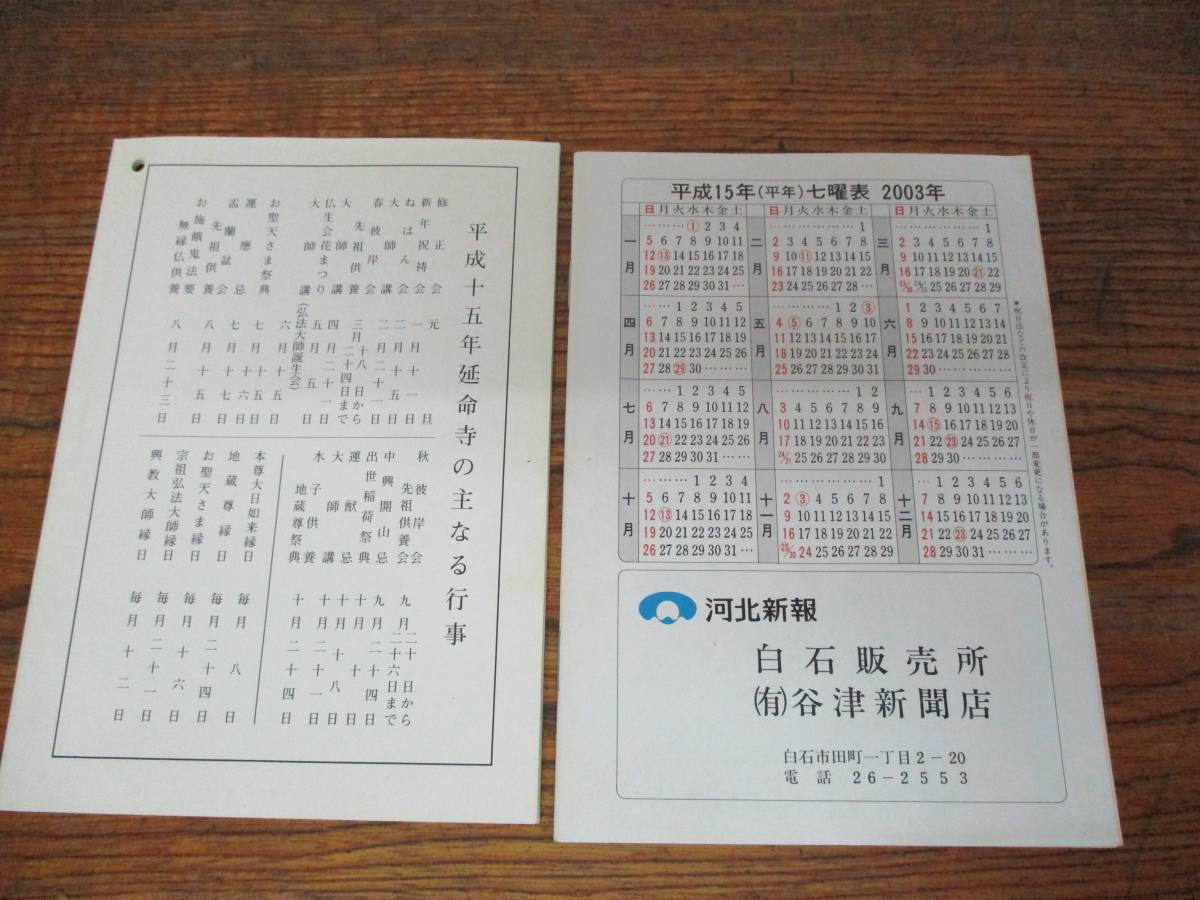 平成十五年延命寺の主なる行事
修正会 元旦
新年祝祷会 一月十一日
ねはん会 二月十五日
大師講 二月二十一日
春彼岸会
先祖供養 三月十八日から二十四日まで
大師講 四月二十一日
仏生会花まつり 五月五日
大師講 (弘法大師誕生会) 六月十五日
お聖天さま祭典 七月十六日
運應忌 七月十七日
盂蘭盆会
先祖供養 八月十五日
お施餓鬼法要
無縁仏供養 八月二十三日
秋彼岸会
先祖供養会 九月二十日から二十六日まで
中興開山忌 九月二十四日
出世稲荷祭典 十月十日
運猷忌 十月十八日
大師講 十月二十一日
水子供養
地蔵尊祭典 十月二十四日
本尊大日如来縁日 毎月八日
地蔵尊縁日 毎月二十四日
お聖天さま縁日 毎月十六日
宗祖弘法大師縁日 毎月二十一日
興教大師縁日 毎月十二日
平成15年(平年)七曜表 2003年
一月
日月火水木金土
………①2 3 4
5 6 7 8 9 10 11
12 ⑬ 14 15 16 17 18
19 20 21 22 23 24 25
26 27 28 29 30 31 …
二月
日月火水木金土
………………1
2 3 4 5 6 7 8
9 10 ⑪ 12 13 14 15
16 17 18 19 20 21 22
23 24 25 26 27 28 …
三月
日月火水木金土
………………1
2 3 4 5 6 7 8
9 10 11 12 13 14 15
16 17 18 19 20 ㉑ 22
23/30 24/31 25 26 27 28 29
四月
……1 2 3 4 5
6 7 8 9 10 11 12
13 14 15 16 17 18 19
20 21 22 23 24 25 26
27 28 ㉙ 30 ………
五月
…………1 2 ③
4 ⑤ 6 7 8 9 10
11 12 13 14 15 16 17
18 19 20 21 22 23 24
25 26 27 28 29 30 31
六月
1 2 3 4 5 6 7
8 9 10 11 12 13 14
15 16 17 18 19 20 21
22 23 24 25 26 27 28
29 30 ……………
七月
……1 2 3 4 5
6 7 8 9 10 11 12
13 14 15 16 17 18 19
20 ㉑ 22 23 24 25 26
27 28 29 30 31 ……
八月
……………1 2
3 4 5 6 7 8 9
10 11 12 13 14 15 16
17 18 19 20 21 22 23
24/31 25 26 27 28 29 30
九月
…1 2 3 4 5 6
7 8 9 10 11 12 13
14 ⑮ 16 17 18 19 20
21 22 ㉓ 24 25 26 27
28 29 30 …………
十月
………1 2 3 4
5 6 7 8 9 10 11
12 ⑬ 14 15 16 17 18
19 20 21 22 23 24 25
26 27 28 29 30 31 …
十一月
………………1
2 ③ 4 5 6 7 8
9 10 11 12 13 14 15
16 17 18 19 20 21 22
23/30 24 25 26 27 28 29
十二月
…1 2 3 4 5 6
7 8 9 10 11 12 13
14 15 16 17 18 19 20
21 22 ㉓ 24 25 26 27
28 29 30 31 ………
●祝日法などの改正により祝日や休日が一部変更になる場合があります。
河北新報
白石販売所
㈲谷津新聞店
白石市田町一丁目2−20
電話 26−2553